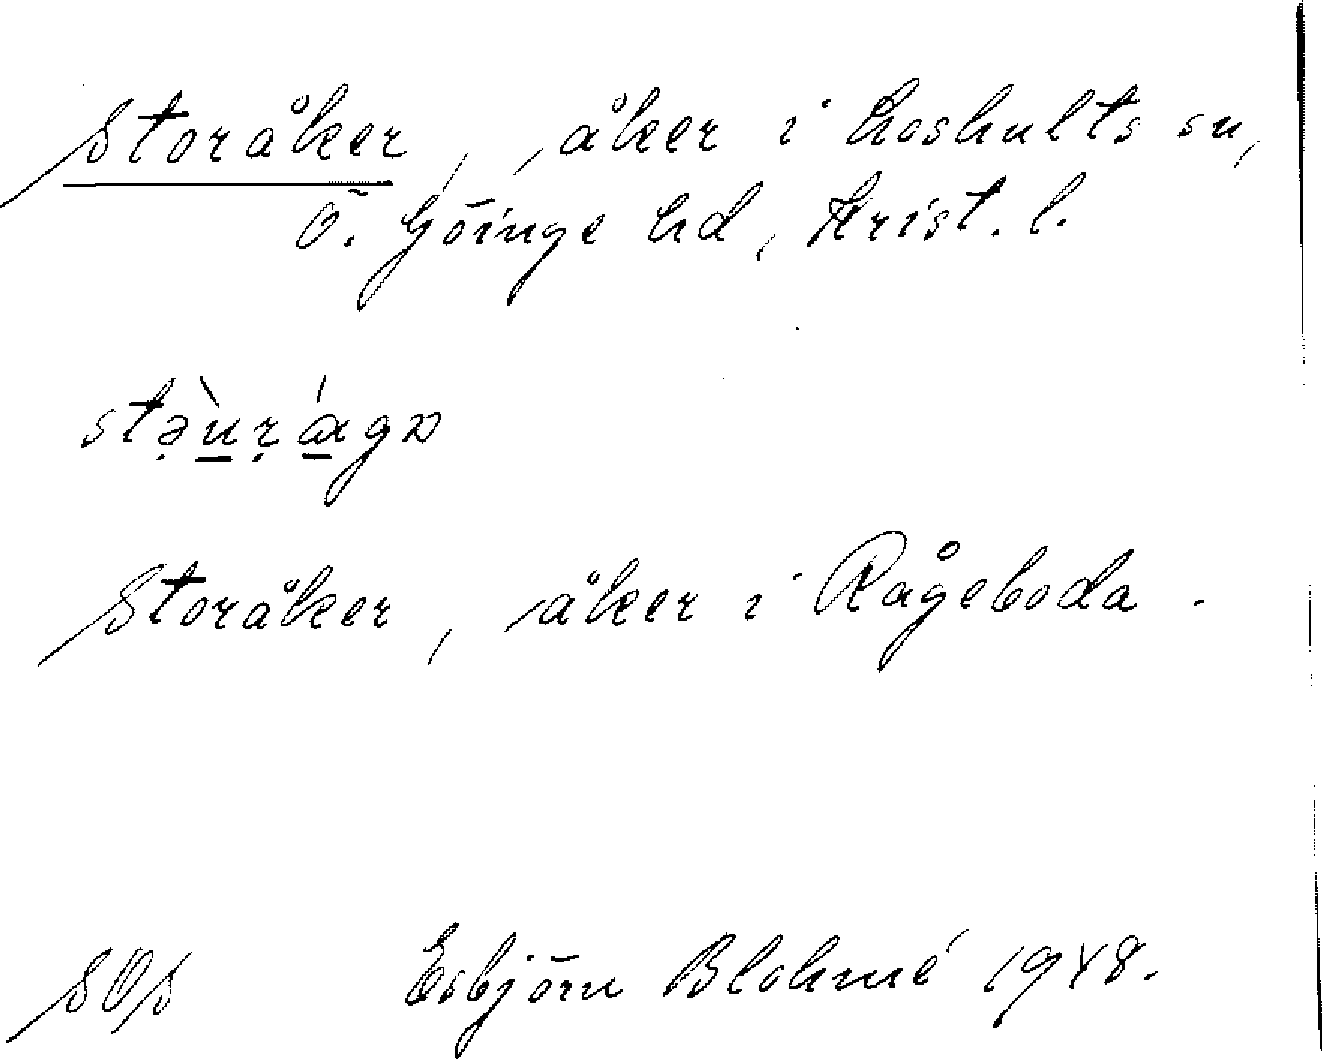 Storåker, åker i Loshults sn,
Ö. Göinge hd, Krist. l.
Storåker, åker i Rågeboda.
Esbjörn Blohmé 1948.